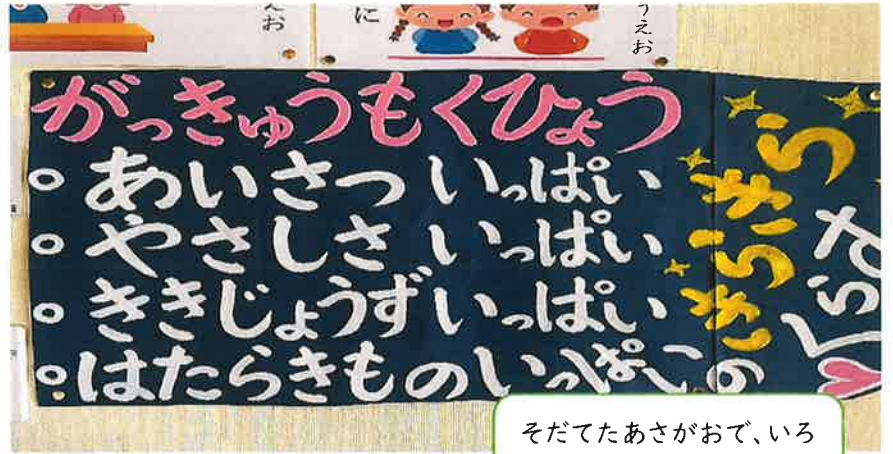 えお
に
うえお
がっきゅうもくひょう
○ あいさつ いっぱい
○ やさしさ いっぱい
○ ききじょうず いっぱい
○ はたらきもの いっぱいの
きらきら
くらす
そだてたあさがおで、いろ